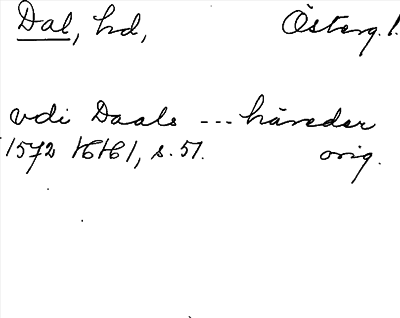 Dal, hd, Österg. l.
vdi Daals --- häreder
1572 HH 1, s. 51. orig.